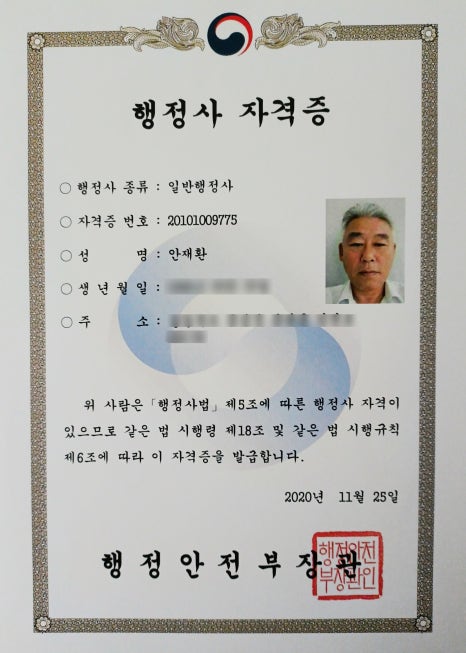 행정사 자격증
○ 행정사 종류 : 일반행정사
○ 자격증 번호 : 20101009775
○ 성 명 : 안재환
○ 생 년 월 일 :
○ 주 소 :
위 사람은 「행정사법」 제5조에 따른 행정사 자격이
있으므로 같은 법 시행령 제18조 및 같은 법 시행규칙
제6조에 따라 이 자격증을 발급합니다.
2020년 11월 25일
행정안전부장관
행정안전
부장관인